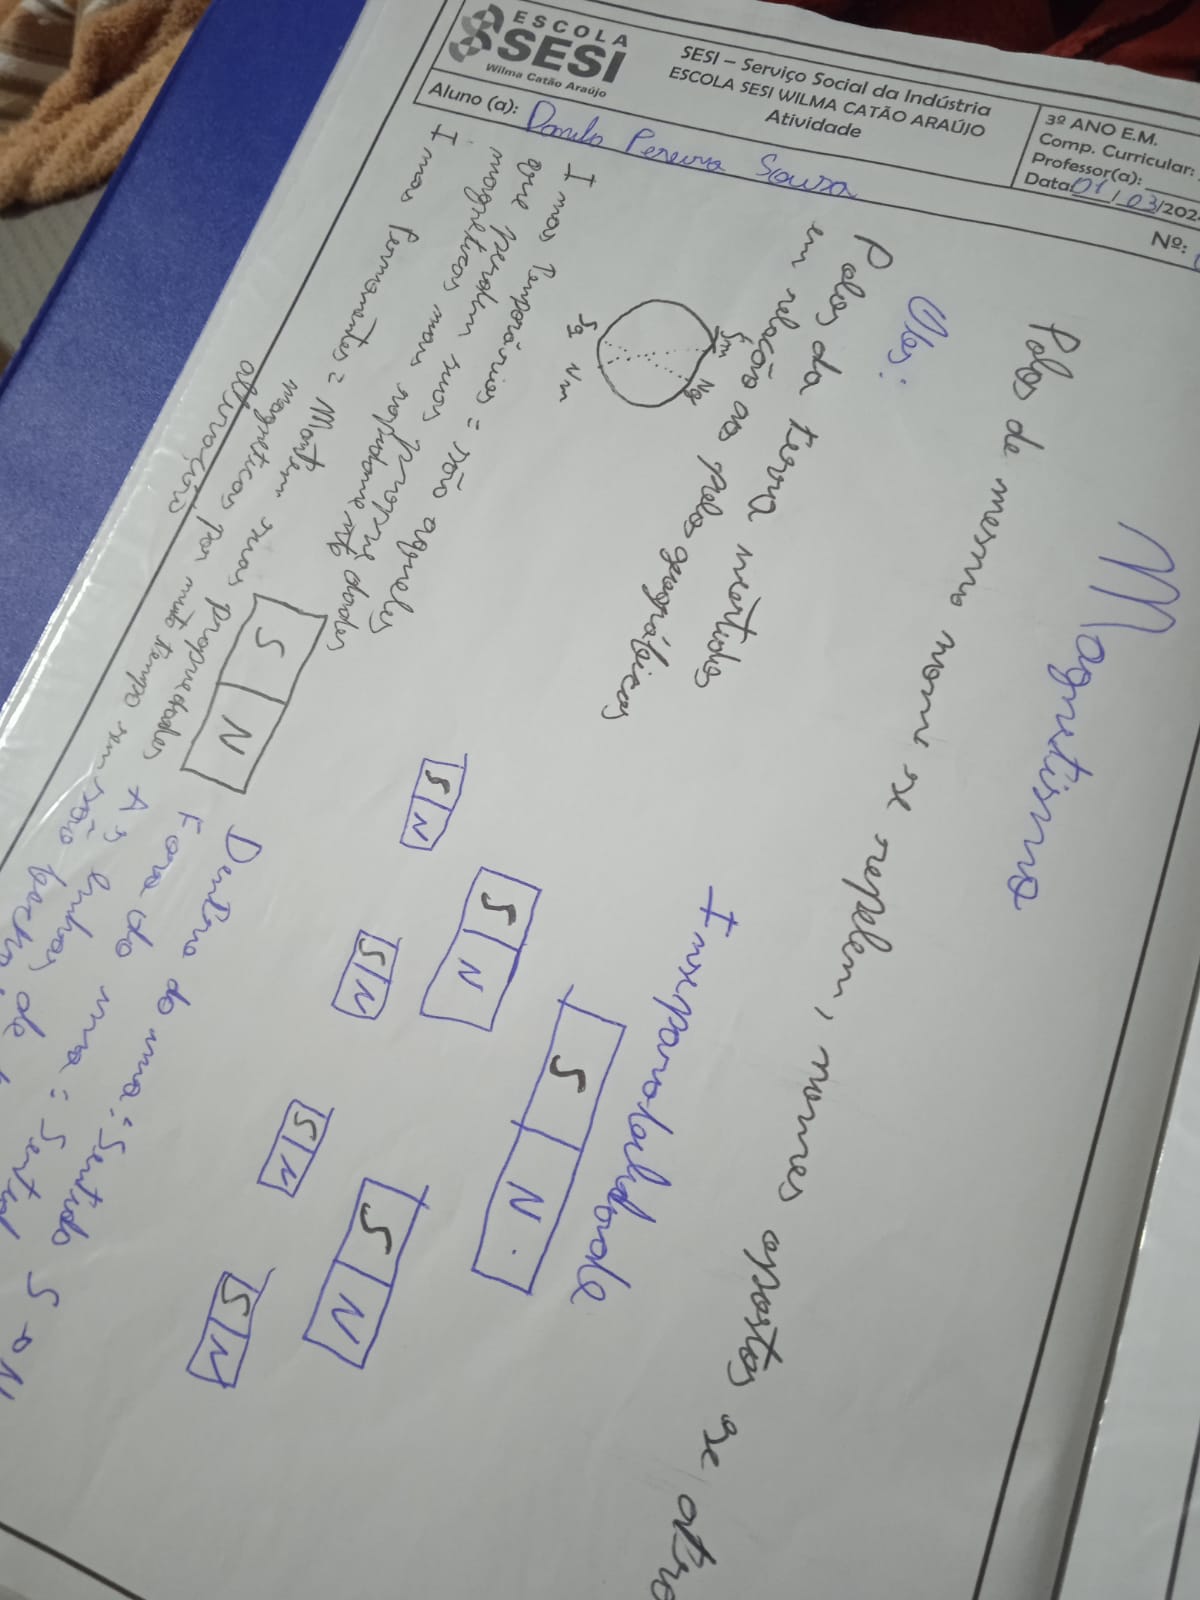 ESCOLA
SESI
Wilma Catão Araújo
SESI – Serviço Social da Indústria
ESCOLA SESI WILMA CATÃO ARAÚJO
Atividade
3º ANO E.M.
Comp. Curricular:
Professor(a):
Data: 01/03/202
Aluno (a): Danilo Pereira Sousa
Nº:
Magnetismo
Polos de mesmo nome se repelem, nomes opostos se atra
Obs:
Polos da terra invertidos
em relação ao polos geográficos
Sm Ng
Sg Nm
Imas temporários = são aqueles
que perdem suas propriedades
magnéticas mais rapidamente
Imas Permanentes = Mantem suas propriedades
magnéticas por muito tempo sem
alterações
Inseparabilidade
S N
S N
S N
S N
S N
S N
S N
S N
Dentro do ima: Sentido S a N
Fora do ima: Sentid
As linhas de
são fecha